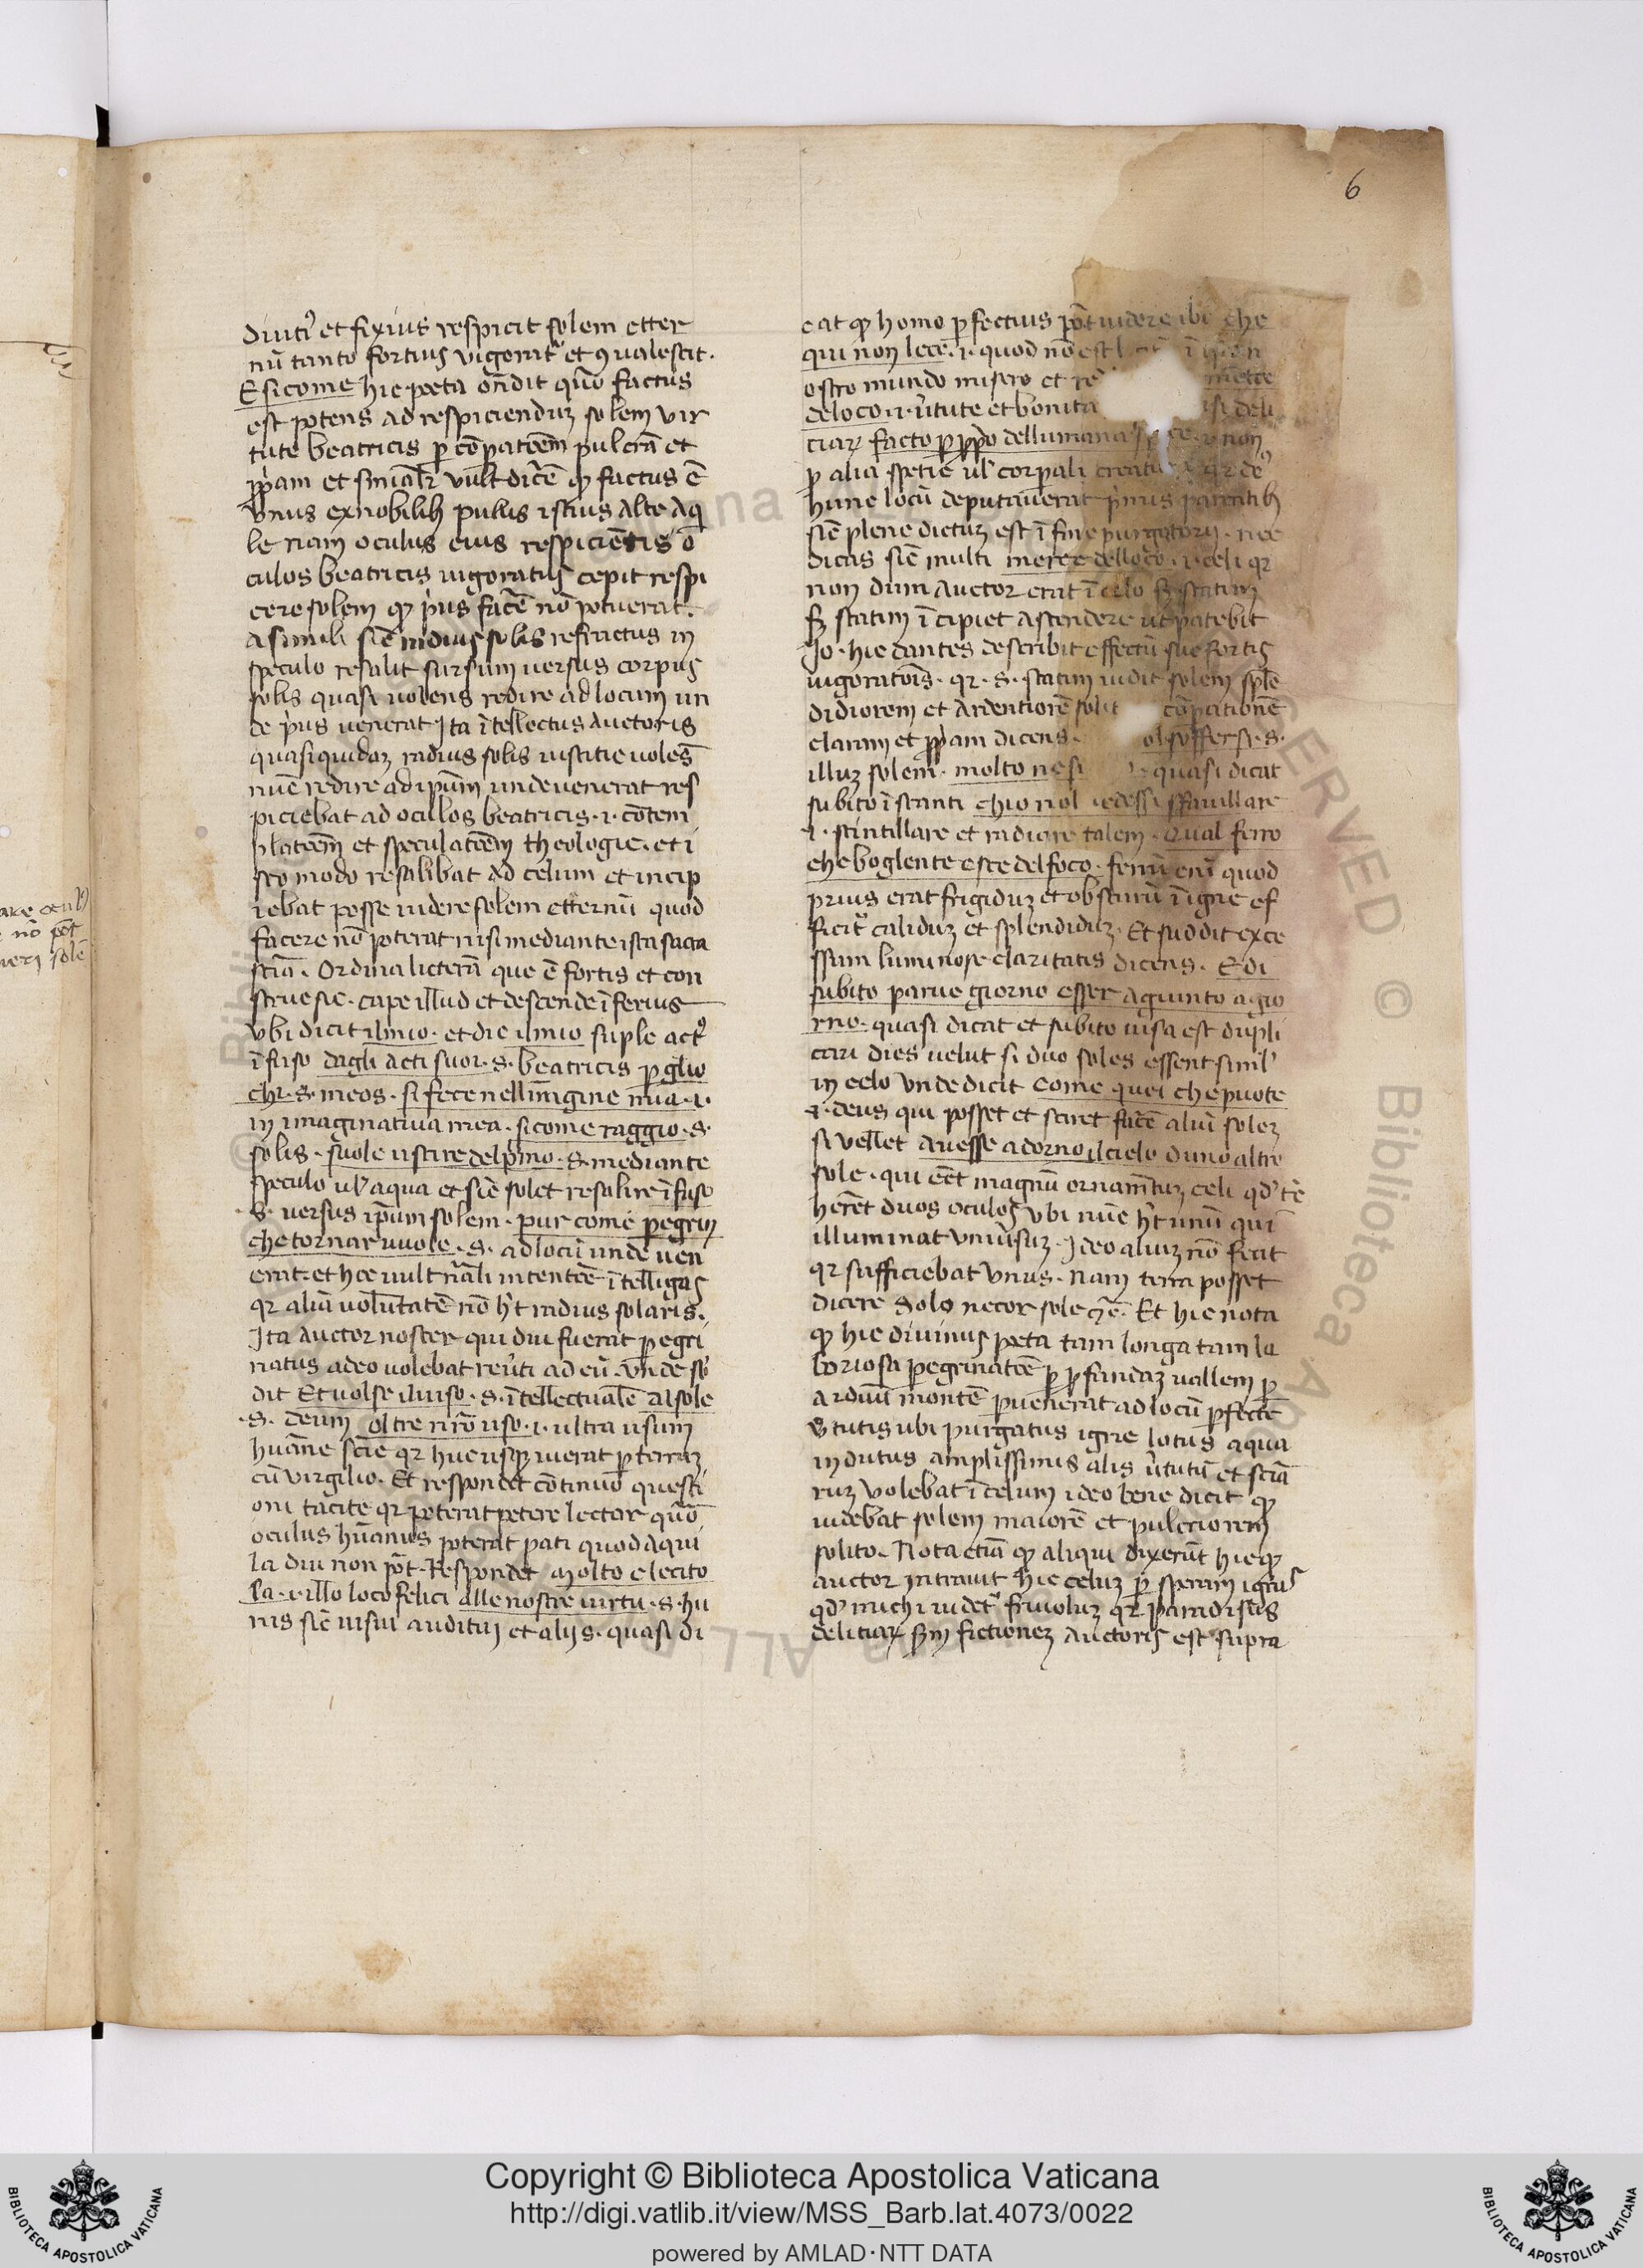 6
diuti᾽ et fixius respicit solem etter
nū tanto fortius vigorat᾽ et ꝯualescit.
E sicome hic poeta oñdit quō factus
est potens ad respicienduꝫ solem vir
tute beatricis ꝑ cōpatōem pulcrā et
ꝓpam et vult dicē ꝙ factus ē
vnus ex nobilibꝫ pullis istius alte aq
le nam oculus eius respiciētis o
culos beatricis uigoratus cepit respi
cere solem ꝙ pius facē nō potuerat.
a simili sic radius solis refractus in
speculo resalit sursum uersus corpus
solis quasi uolens redire ad locum un
de pius uenerat Ita ītellectus auctoris
quasi quidaꝫ radius solis iustitie uolēs
nūc redire ad ipm̄ unde uenerat res
piciebat ad occulos beatricis .i. cōtem
platōem et speculatōem theologie. et i
sto modo resalibat ad celum et incip
iebat posse uidere solem etternū quod
facere nō poterat nisi mediante ista sacra
sciā. Ordina licterā que ē fortis et con
strue sic. cape illud et descende īferius
vbi dicit il mio. et dic il mio suple act᾽
īfuso dagli acti suoi .s. beatricis ꝑ gliο
chi .s. meos. si fece nell imagine mia .i.
in imaginatiua mea. sicome raggio .s.
solis. suole uscire del pimo .s. mediante
speculo ul᾽ aqua et sic solet resalire ī suso
.s. uersus ipsum solem. pur come pegrin
che tornar uuole .s. ad locū unde uen
erat. et hec uult nāli intentōe ītelligas
qr aliā uoluntatē nō ht radius solaris.
Ita auctor noster qui diu fuerat pegri
natus a deo uolebat reuti ad eū. vnde sb
dit Et uolse il uiso .s. ītellectualē al sole
.s. deum oltre nrō uso .i. ultra usum
huāne scie qr huc usqꝫ iuerat ꝑ terraꝫ
cū virgilio. Et respondet cōtinuo questi
oni tacite qr poterat petere lector quō
oculus hūanus poterat pati quod aqui
la diu non pōt. Respondet Molto e lecito
la .i. illo loco felici alle nostre uirtu .s. hu
nis sic uisui auditui et alijs. quasi di
cat ꝙ homo ꝑfectius pōt uidere ibi che
qui non lece .i. quod nō est
ostro mundo misero et merce
del oco .i. utute et bonita deli
ciaꝝ facto ꝑ ꝓpo dell umana non
ꝑ alia spetie ul᾽ corpali qr de᾽
hunc locū deputauerat pimis parētibꝫ
sic plene dictuꝫ est ī fine purgatorij. nec
dicas sic multi merce del loco .i. celi qr
non dum auctor erat ī celo sꝫ statim
sꝫ statim īcipiet ascendere ut patebit
Io. hic dantes describit effectū sue fortis
uigoratōis. qr .s. statim uidit solem splē
didiorem et ardentiorē solit cōpationē
claram et ꝓpam dicens. ol soffersi .s.
illuꝫ solem. molto ne si quasi dicat
subito īstanti chio nol uedessi sfauillare
.i. scintillare et radiare talem. Qual ferro
che boglente esce del foco. ferrū enī quod
prius erat frigiduꝫ et obscurū ī igne ef
ficit᾽ caliduꝫ et splendiduꝫ. Et suddit exce
ssum luminose claritatis dicens. E di
subito parue giorno esser agiunto a gio
rno. quasi dicat et subito uisa est dupli
cari dies uelut si duo soles essent simil᾽
in celo vnde dicit come quei che puote
.i. deus qui posset et sciret facē aliū soleꝫ
si vellet auesse adorno il cielo d uno altro
sole. qui eēt magnū ornamtuꝫ celi qd᾽ te
herēt duos oculos vbi nūc ht unū qui
illuminat vniusuꝫ. Ideo aliuꝫ nō fecit
qr sufficiebat vnus. Nam terra posset
dicere Solo necor sole ⁊c̄. Et hic nota
ꝙ hic diuinus poeta tam longa tam la
boriosa pegrinatōe ꝑ ꝓfundaꝫ uallem ꝑ
arduū montē puenerat ad locū ꝑfecte
vtutis ubi purgatus igne lotus aqua
indutus amplissimis alis ututū et sciā
ruꝫ volebat ī celum ideo bene dicit ꝙ
uidebat solem maiorē et pulcriorem
solito. Nota etiā ꝙ aliqui dixerūt hic ꝙ
auctor intrauit hic celuꝫ ꝑ speram ignis
qd᾽ michi uidet᾽ friuoluꝫ qr paradisus
delitiaꝝ sm fictioneꝫ auctoris est supra
Copyright © Biblioteca Apostolica Vaticana
http://digi.vatlib.it/view/MSS_Barb.lat.4073/0022
powered by AMLAD·NTT DATA
BIBLIOTECA APOSTOLICA VATICANA
BIBLIOTECA APOSTOLICA VATICANA